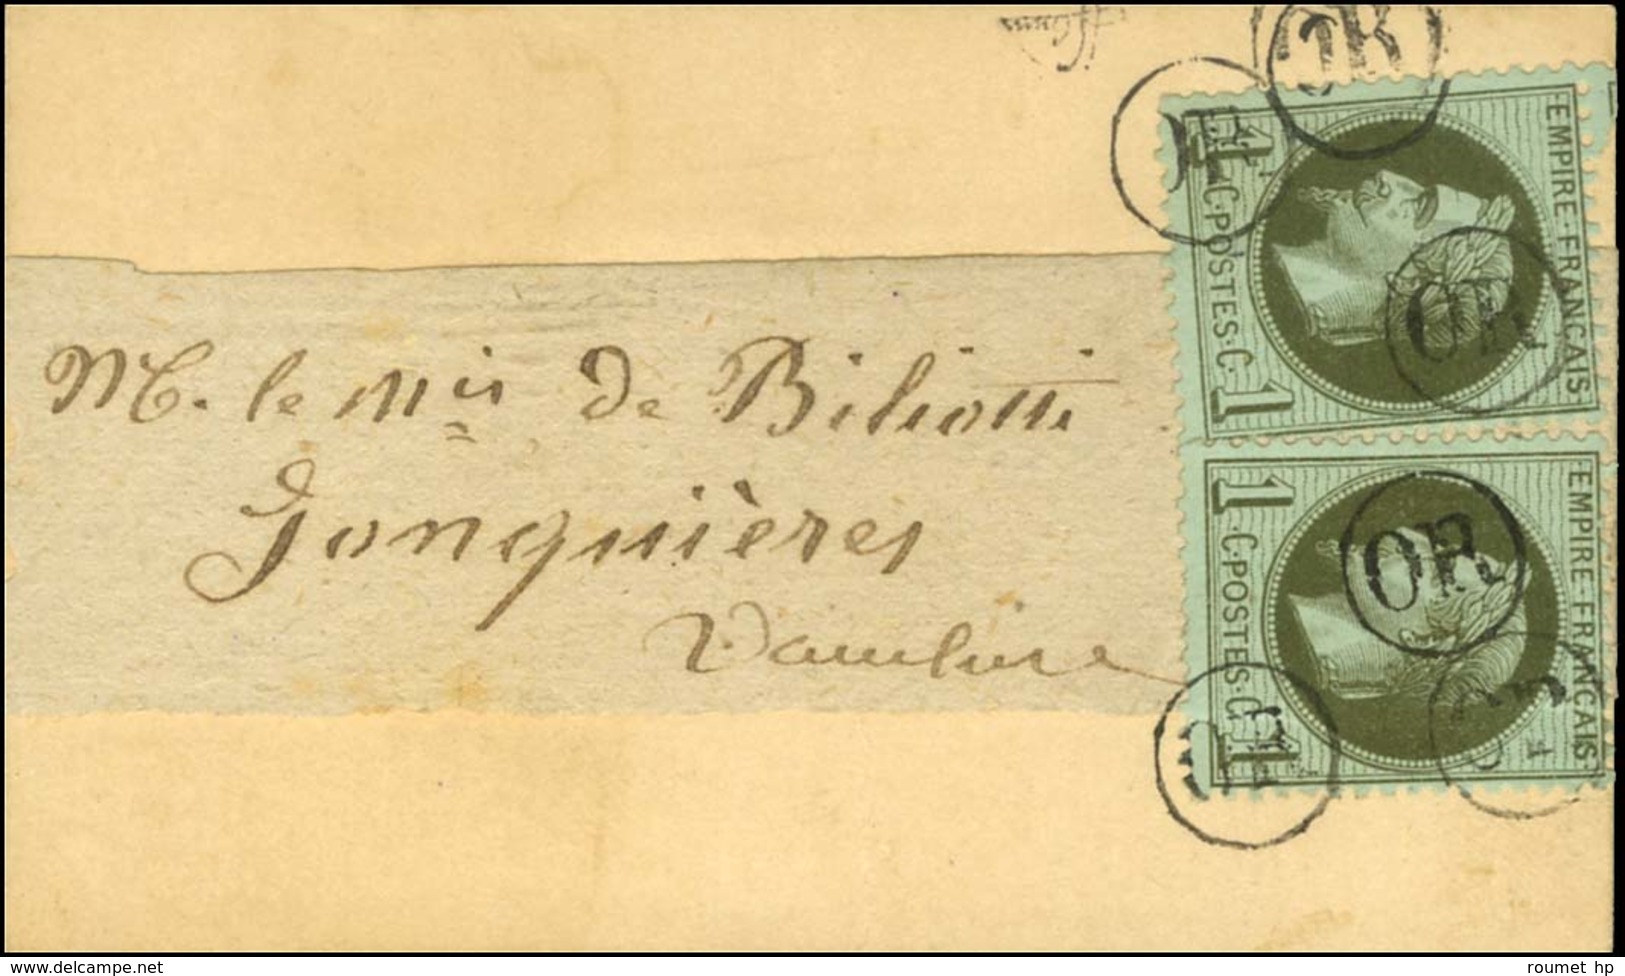 OR
OR
OR
OR
OR
OR
M. le Mis de Biliotti
Jonquières
Vaucluse
1 C·POSTES·C. 1
EMPIRE·FRANÇAIS
1 C·POSTES·C. 1
EMPIRE·FRANÇAIS
www.delcampe.net
roumet hp